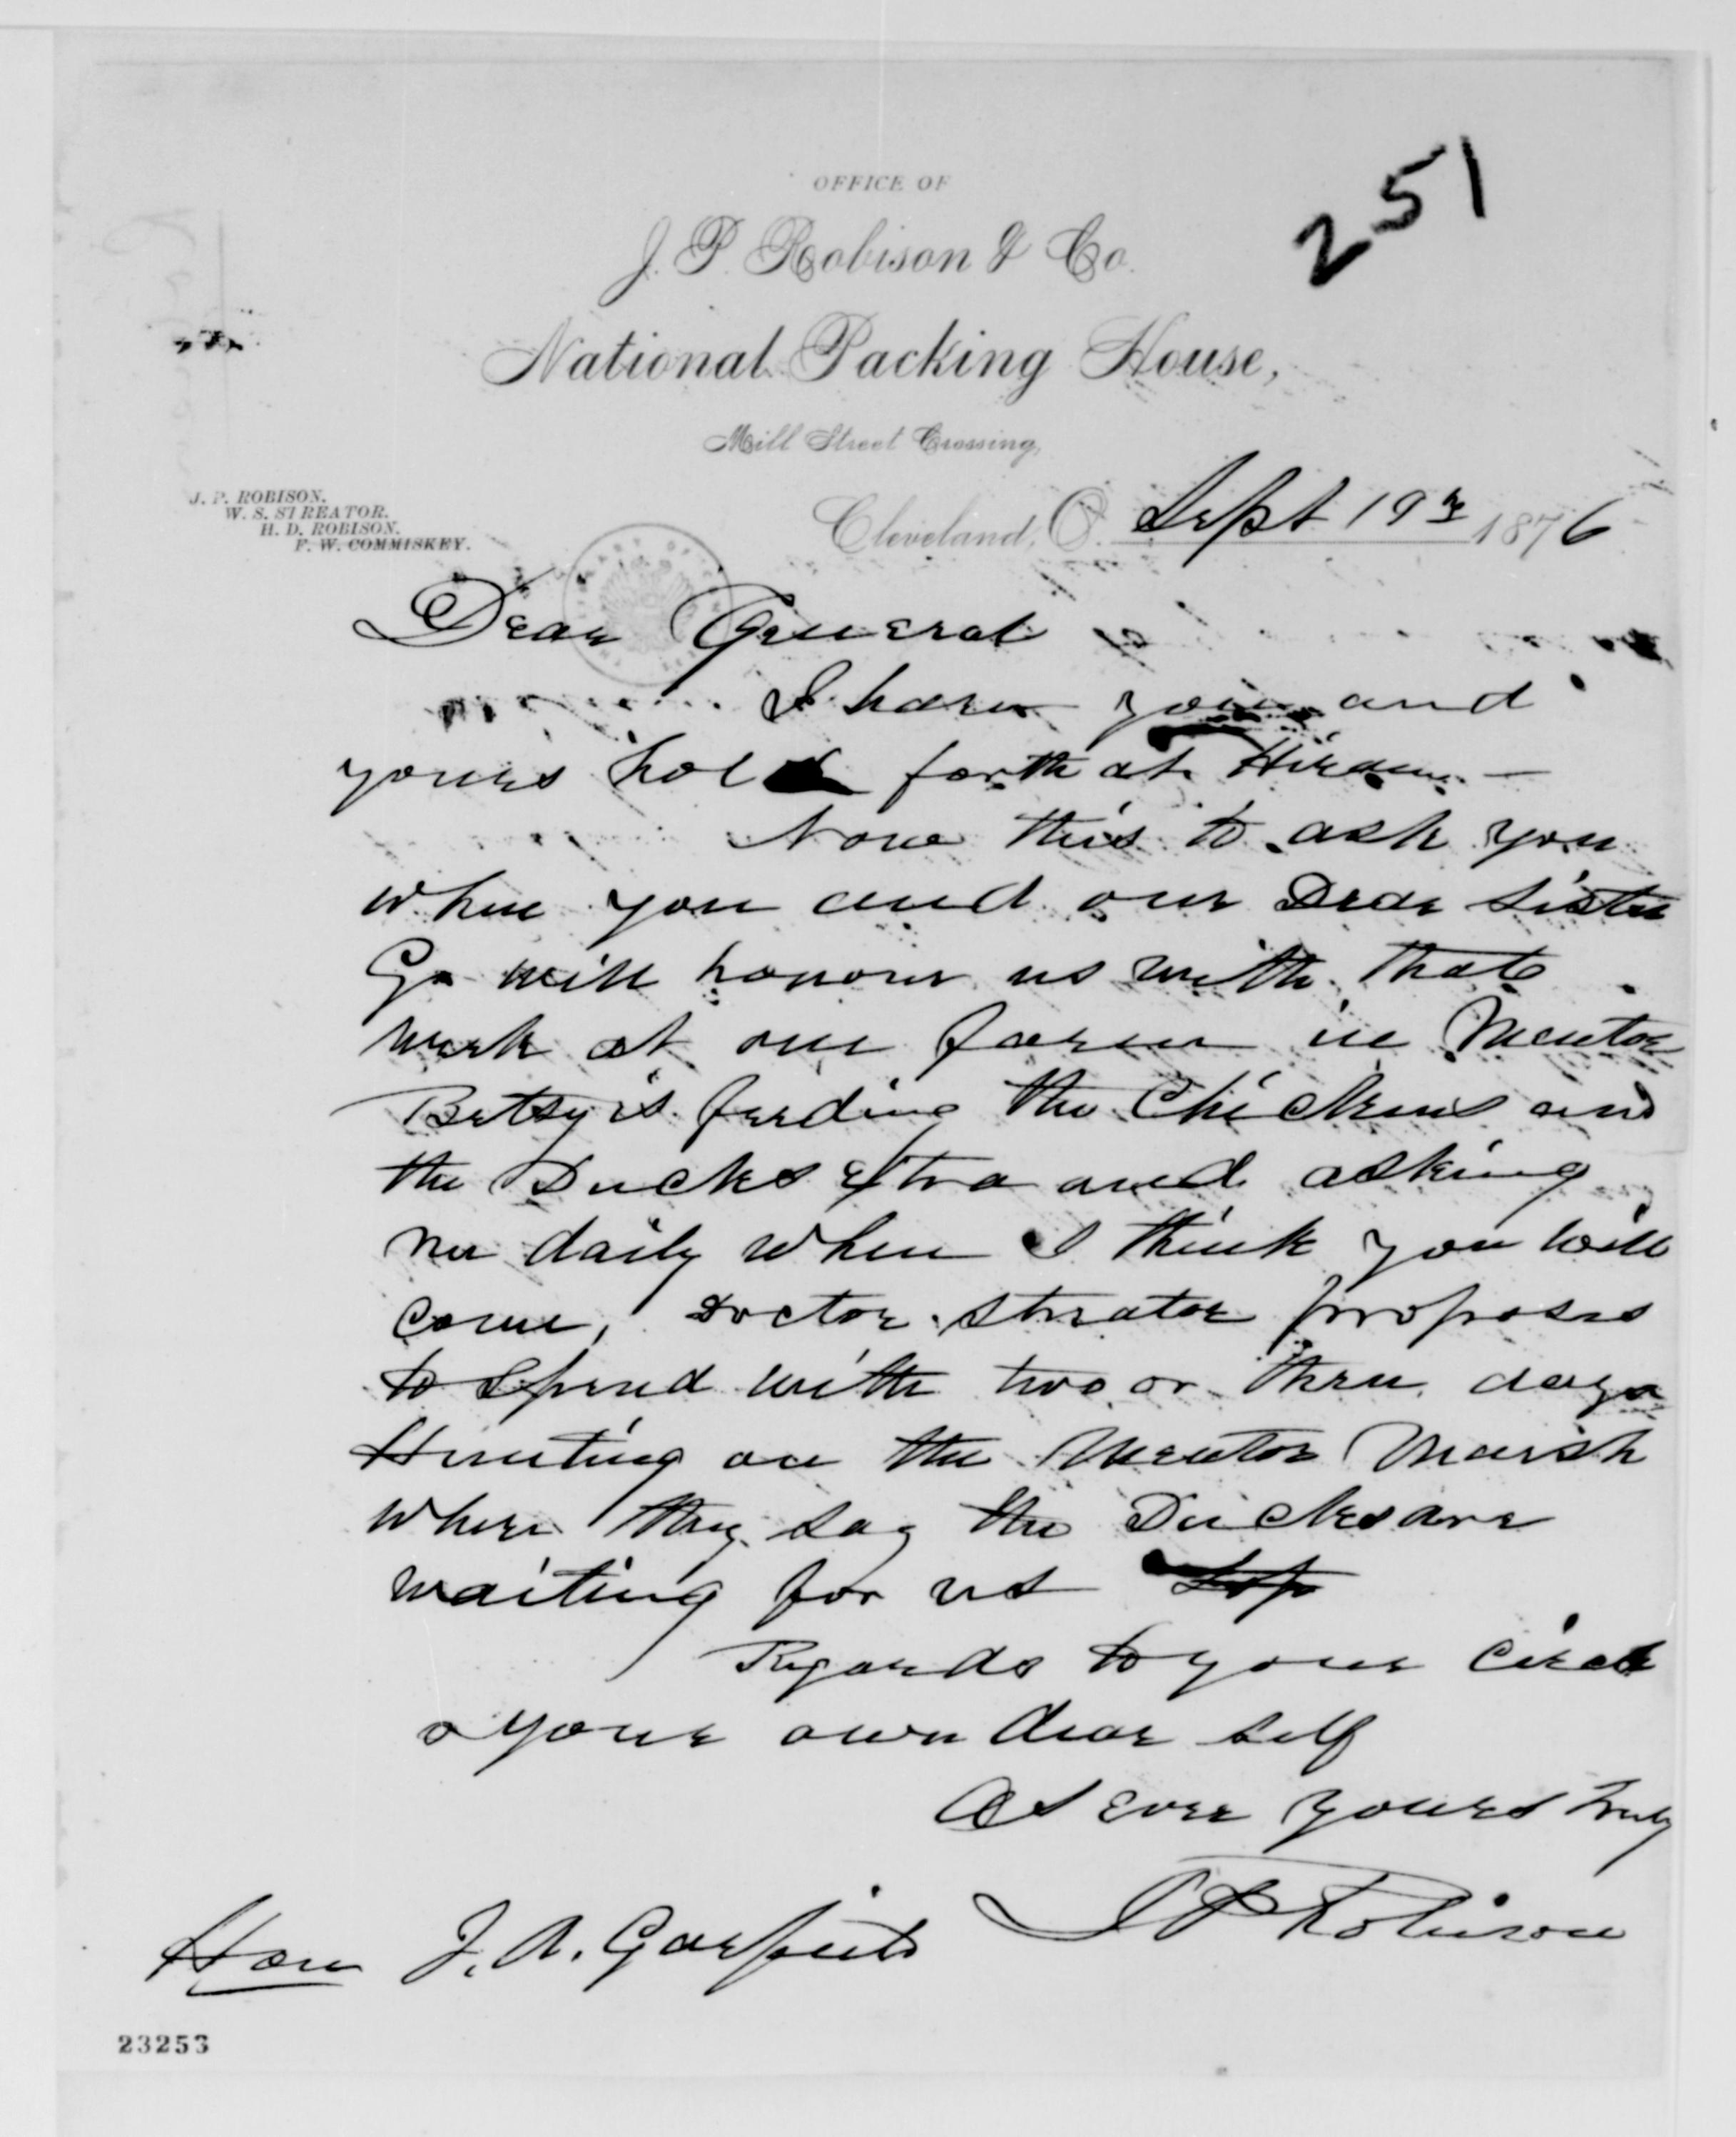 251
OFFICE OF
J. P. Robison & Co.
National Packing House,
Mill Street Crossing,
J. P. ROBISON.
W. S. STREATOR.
H. D. ROBISON.
F. W. COMMISKEY.
Cleveland, O. Sept 19th 1876
Dear General
I learn you and
yours hold forth at Hiram —
Now this to ask you
when you and our Dear Sister
G. will honour us with that
week at our farm in Mentor
Betsy is feeding the Chickens and
the Ducks extra and asking
me daily when I think you will
come, Doctor Streator proposes
to spend with two or three days
Hunting on the Mentor Marsh
where they say the Ducks are
waiting for us
Regards to your circle
& your own dear self
As ever yours truly
J P Robison
Hon J. A. Garfield
23253